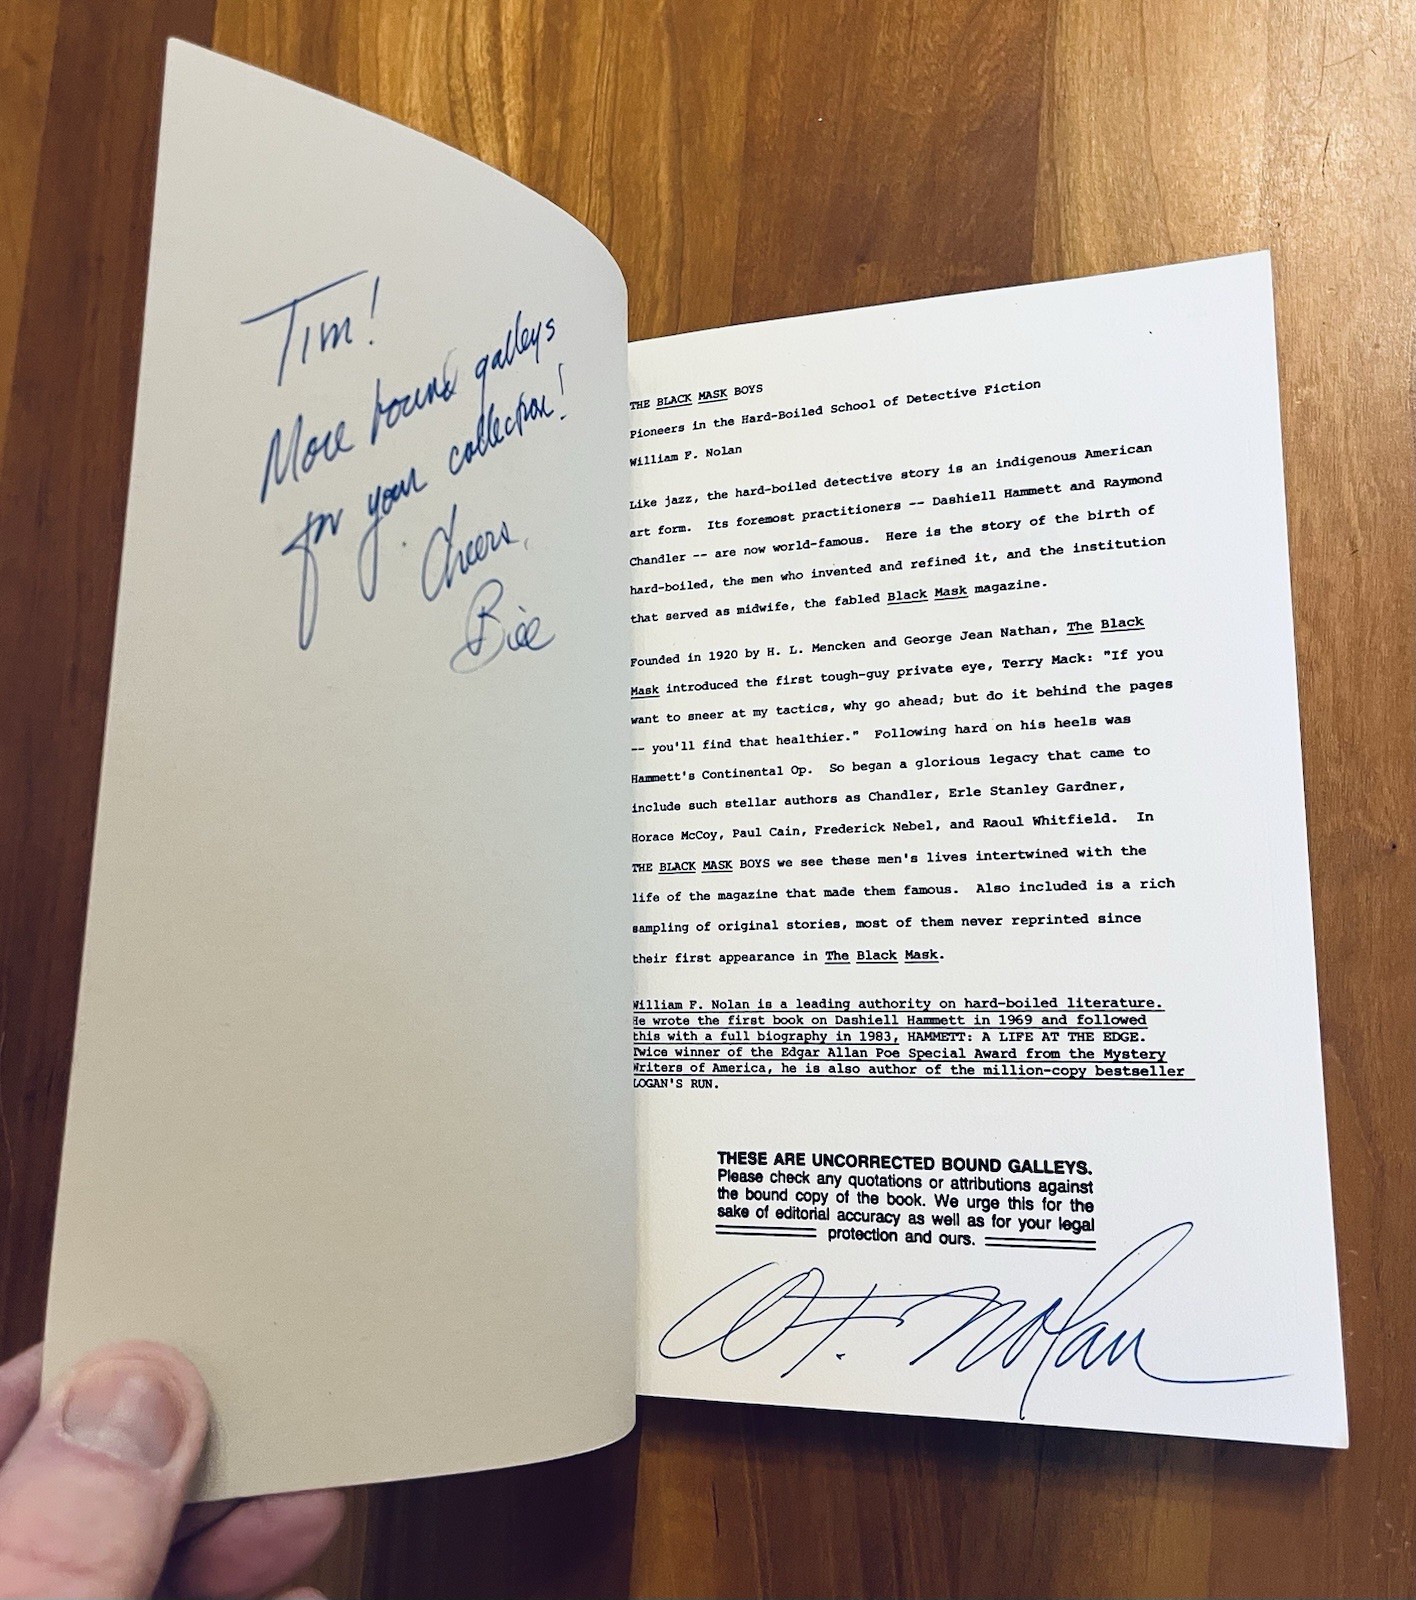 Tim!
More bound galleys
for your collection!
Cheers,
Bill
THE BLACK MASK BOYS
Pioneers in the Hard-Boiled School of Detective Fiction
William F. Nolan
Like jazz, the hard-boiled detective story is an indigenous American
art form. Its foremost practitioners -- Dashiell Hammett and Raymond
Chandler -- are now world-famous. Here is the story of the birth of
hard-boiled, the men who invented and refined it, and the institution
that served as midwife, the fabled Black Mask magazine.
Founded in 1920 by H. L. Mencken and George Jean Nathan, The Black
Mask introduced the first tough-guy private eye, Terry Mack: "If you
want to sneer at my tactics, why go ahead; but do it behind the pages
-- you'll find that healthier." Following hard on his heels was
Hammett's Continental Op. So began a glorious legacy that came to
include such stellar authors as Chandler, Erle Stanley Gardner,
Horace McCoy, Paul Cain, Frederick Nebel, and Raoul Whitfield. In
THE BLACK MASK BOYS we see these men's lives intertwined with the
life of the magazine that made them famous. Also included is a rich
sampling of original stories, most of them never reprinted since
their first appearance in The Black Mask.
William F. Nolan is a leading authority on hard-boiled literature.
He wrote the first book on Dashiell Hammett in 1969 and followed
this with a full biography in 1983, HAMMETT: A LIFE AT THE EDGE.
Twice winner of the Edgar Allan Poe Special Award from the Mystery
Writers of America, he is also author of the million-copy bestseller
LOGAN'S RUN.
THESE ARE UNCORRECTED BOUND GALLEYS.
Please check any quotations or attributions against
the bound copy of the book. We urge this for the
sake of editorial accuracy as well as for your legal
protection and ours.
W.F. Nolan